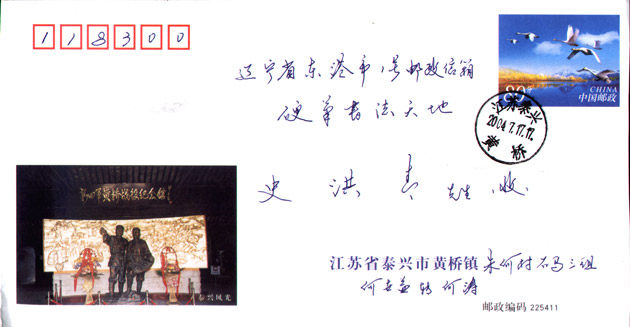 118300
80
CHINA
中国邮政
辽宁省东港市1号邮政信箱
硬笔书法天地
江苏泰兴
2004.7.17.17
黄桥
史洪青 先生 收
新四军黄桥战役纪念馆
泰兴风光
江苏省泰兴市黄桥镇 朱何村石马三组
何玉益转何涛
邮政编码 225411